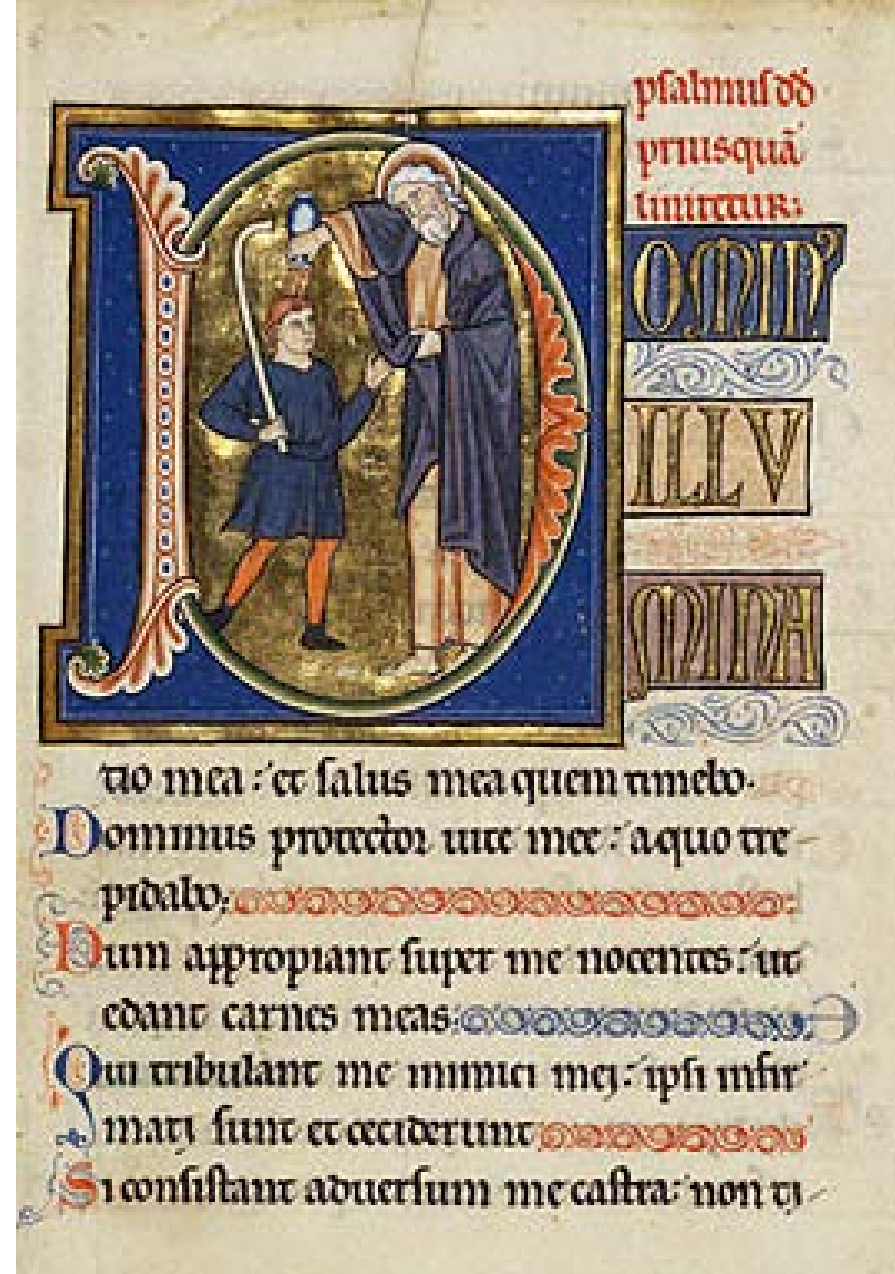 psalmus dd
priusquā
liniretur:
DOMIN'
ILLV
MINA
tio mea: et salus mea quem timebo.
Dominus protector uite mee: aquo tre
pidabo;
Dum appropiant super me nocentes: ut
edant carnes meas:
Qui tribulant me inimici mei: ipsi infir
mati sunt et ceciderunt
Si consistant aduersum me castra: non ti